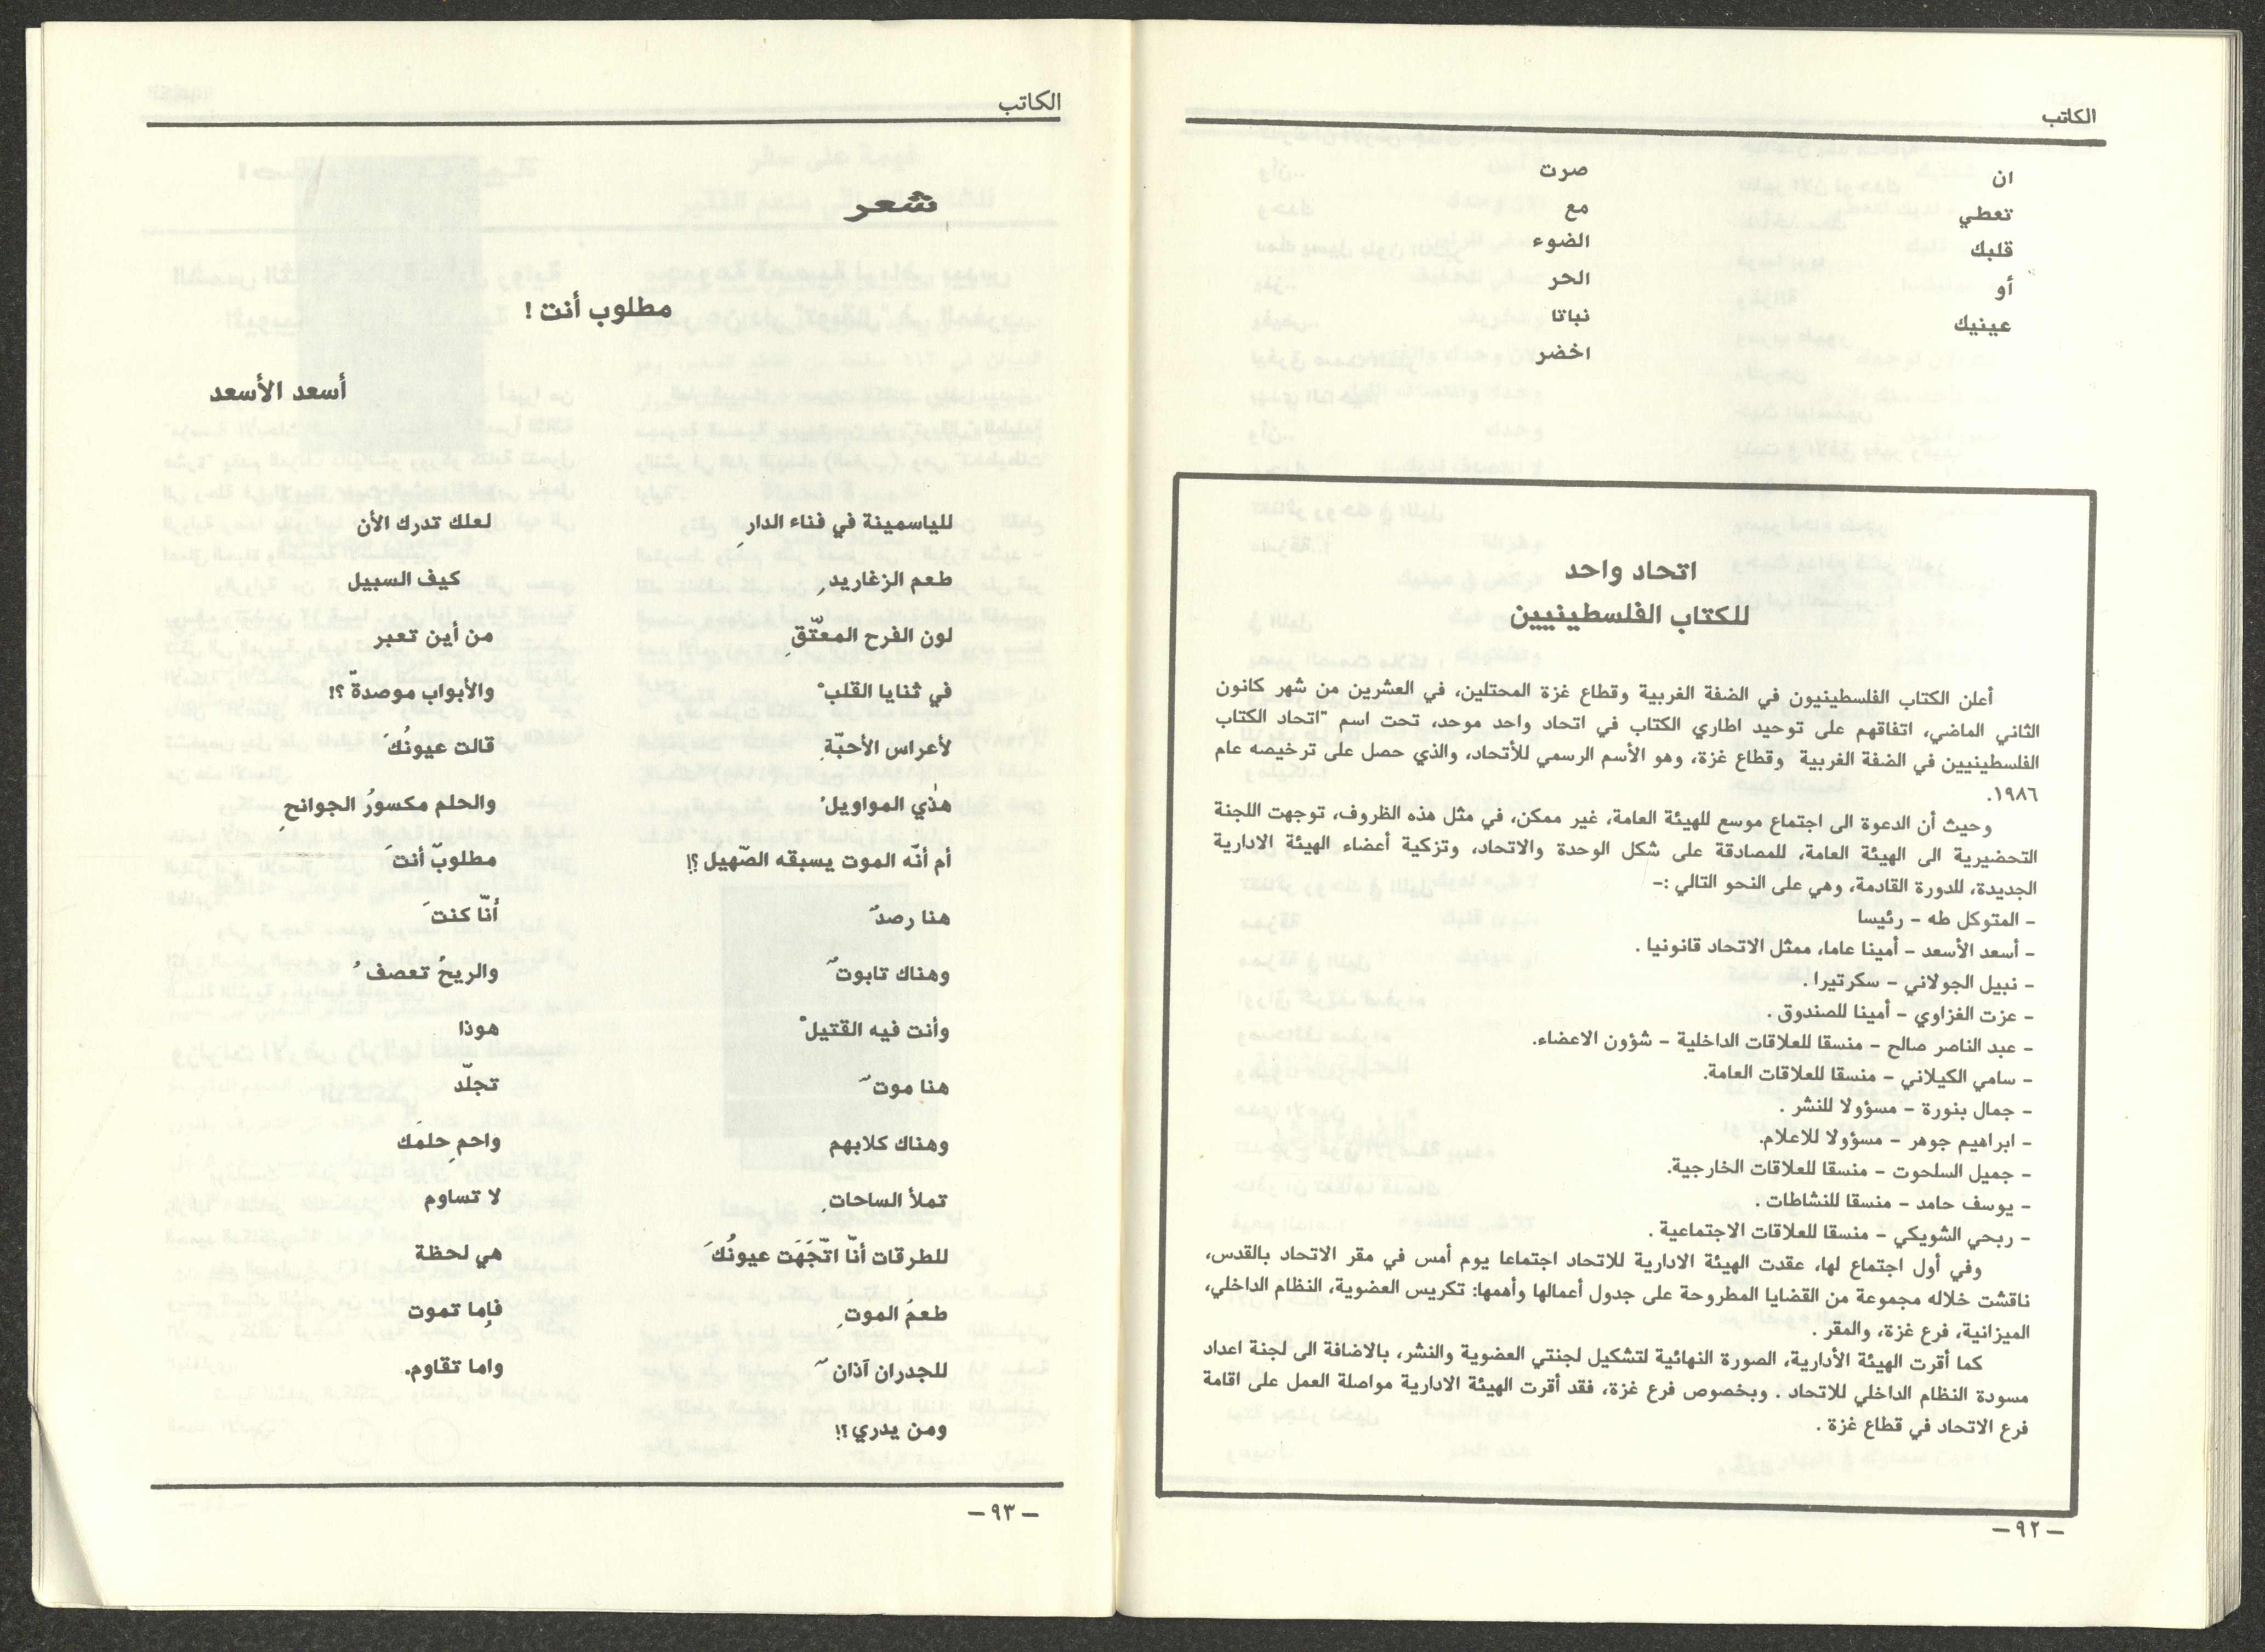 الكاتب
ان
تعطي
قلبك
أو
عينيك
صرت
مع
الضوء
الحر
نباتا
اخضر
اتحاد واحد
للكتاب الفلسطينيين
أعلن الكتاب الفلسطينيون في الضفة الغربية وقطاع غزة المحتلين، في العشرين من شهر كانون
الثاني الماضي، اتفاقهم على توحيد اطاري الكتاب في اتحاد واحد موحد، تحت اسم "اتحاد الكتاب
الفلسطينيين في الضفة الغربية وقطاع غزة، وهو الأسم الرسمي للأتحاد، والذي حصل على ترخيصه عام
١٩٨٦.
وحيث أن الدعوة الى اجتماع موسع للهيئة العامة، غير ممكن، في مثل هذه الظروف، توجهت اللجنة
التحضيرية الى الهيئة العامة، للمصادقة على شكل الوحدة والاتحاد، وتزكية أعضاء الهيئة الادارية
الجديدة، للدورة القادمة، وهي على النحو التالي :-
- المتوكل طه - رئيسا
- أسعد الأسعد - أمينا عاما، ممثل الاتحاد قانونيا .
- نبيل الجولاني - سكرتيرا .
- عزت الغزاوي - أمينا للصندوق .
- عبد الناصر صالح - منسقا للعلاقات الداخلية - شؤون الاعضاء.
- سامي الكيلاني - منسقا للعلاقات العامة.
- جمال بنورة - مسؤولا للنشر .
- ابراهيم جوهر - مسؤولا للاعلام.
- جميل السلحوت - منسقا للعلاقات الخارجية.
- يوسف حامد - منسقا للنشاطات .
- ربحي الشويكي - منسقا للعلاقات الاجتماعية .
وفي أول اجتماع لها، عقدت الهيئة الادارية للاتحاد اجتماعا يوم أمس في مقر الاتحاد بالقدس،
ناقشت خلاله مجموعة من القضايا المطروحة على جدول أعمالها وأهمها: تكريس العضوية، النظام الداخلي،
الميزانية، فرع غزة، والمقر .
كما أقرت الهيئة الأدارية، الصورة النهائية لتشكيل لجنتي العضوية والنشر، بالاضافة الى لجنة اعداد
مسودة النظام الداخلي للاتحاد . وبخصوص فرع غزة، فقد أقرت الهيئة الادارية مواصلة العمل على اقامة
فرع الاتحاد في قطاع غزة .
- ٩٢ -
الكاتب
شعر
مطلوب أنت !
أسعد الأسعد
للياسمينة في فناء الدارِ
طعم الزغاريدِ
لون الفرح المعتّقِ
في ثنايا القلبْ
لأعراس الأحبّةِ
هذي المواويلْ
أم أنّه الموت يسبقه الصّهيل ؟!
هنا رصدٌ
وهناك تابوتٌ
وأنت فيه القتيلْ
هنا موتٌ
وهناك كلابهم
تملأ الساحاتِ
للطرقات أنّا اتّجَهَت عيونُكَ
طعمَ الموتِ
للجدران آذانٌ
ومن يدري ؟!
لعلك تدرك الأن
كيف السبيل
من أين تعبر
والأبواب موصدةٌ ؟!
قالت عيونُكَ
والحلم مكسورُ الجوانحِ
مطلوبٌ أنتَ
أنّا كنتَ
والريحُ تعصفُ
هوذا
تجلّد
واحمِ حلمَك
لا تساوم
هي لحظة
فإما تموت
واما تقاوم.
- ٩٣ -